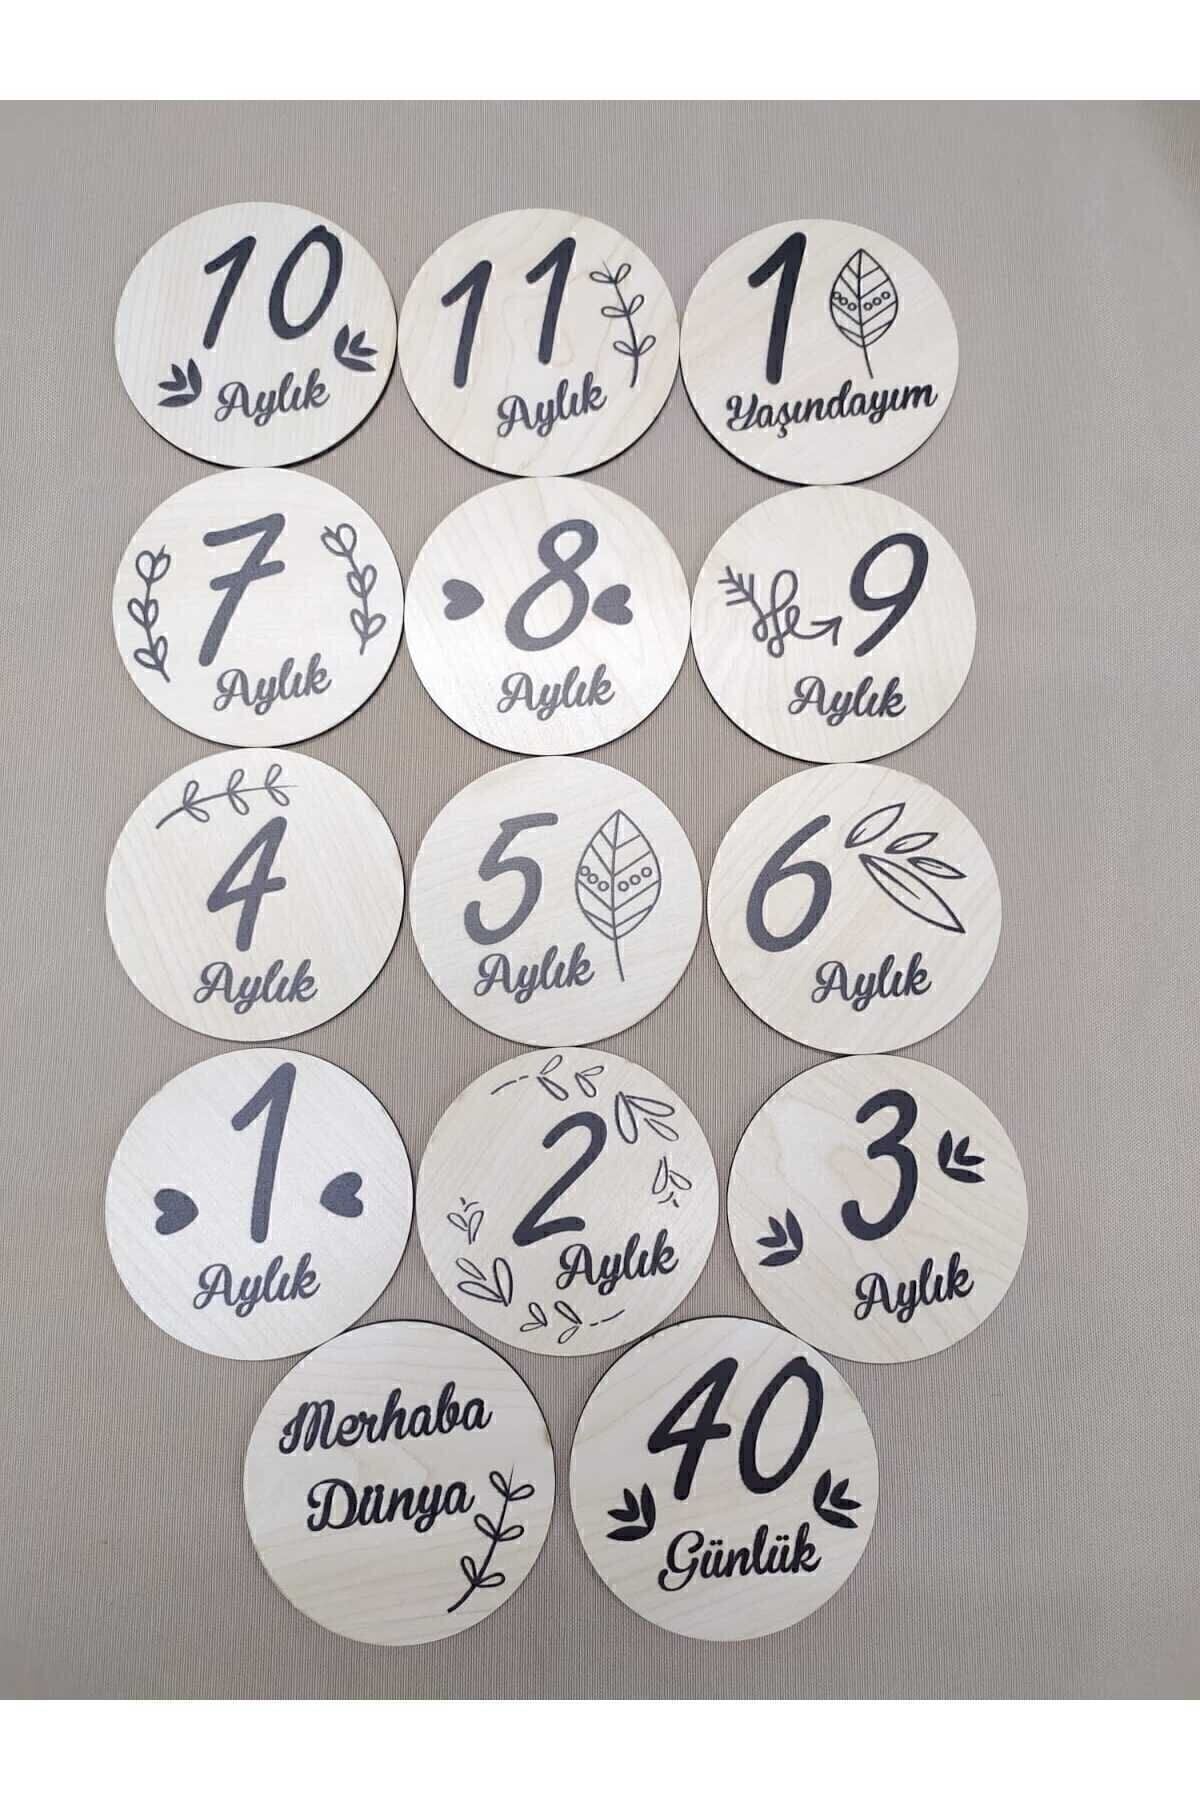 10
Aylık
11
Aylık
1
Yaşındayım
7
Aylık
8
Aylık
9
Aylık
4
Aylık
5
Aylık
6
Aylık
1
Aylık
2
Aylık
3
Aylık
Merhaba
Dünya
40
Günlük